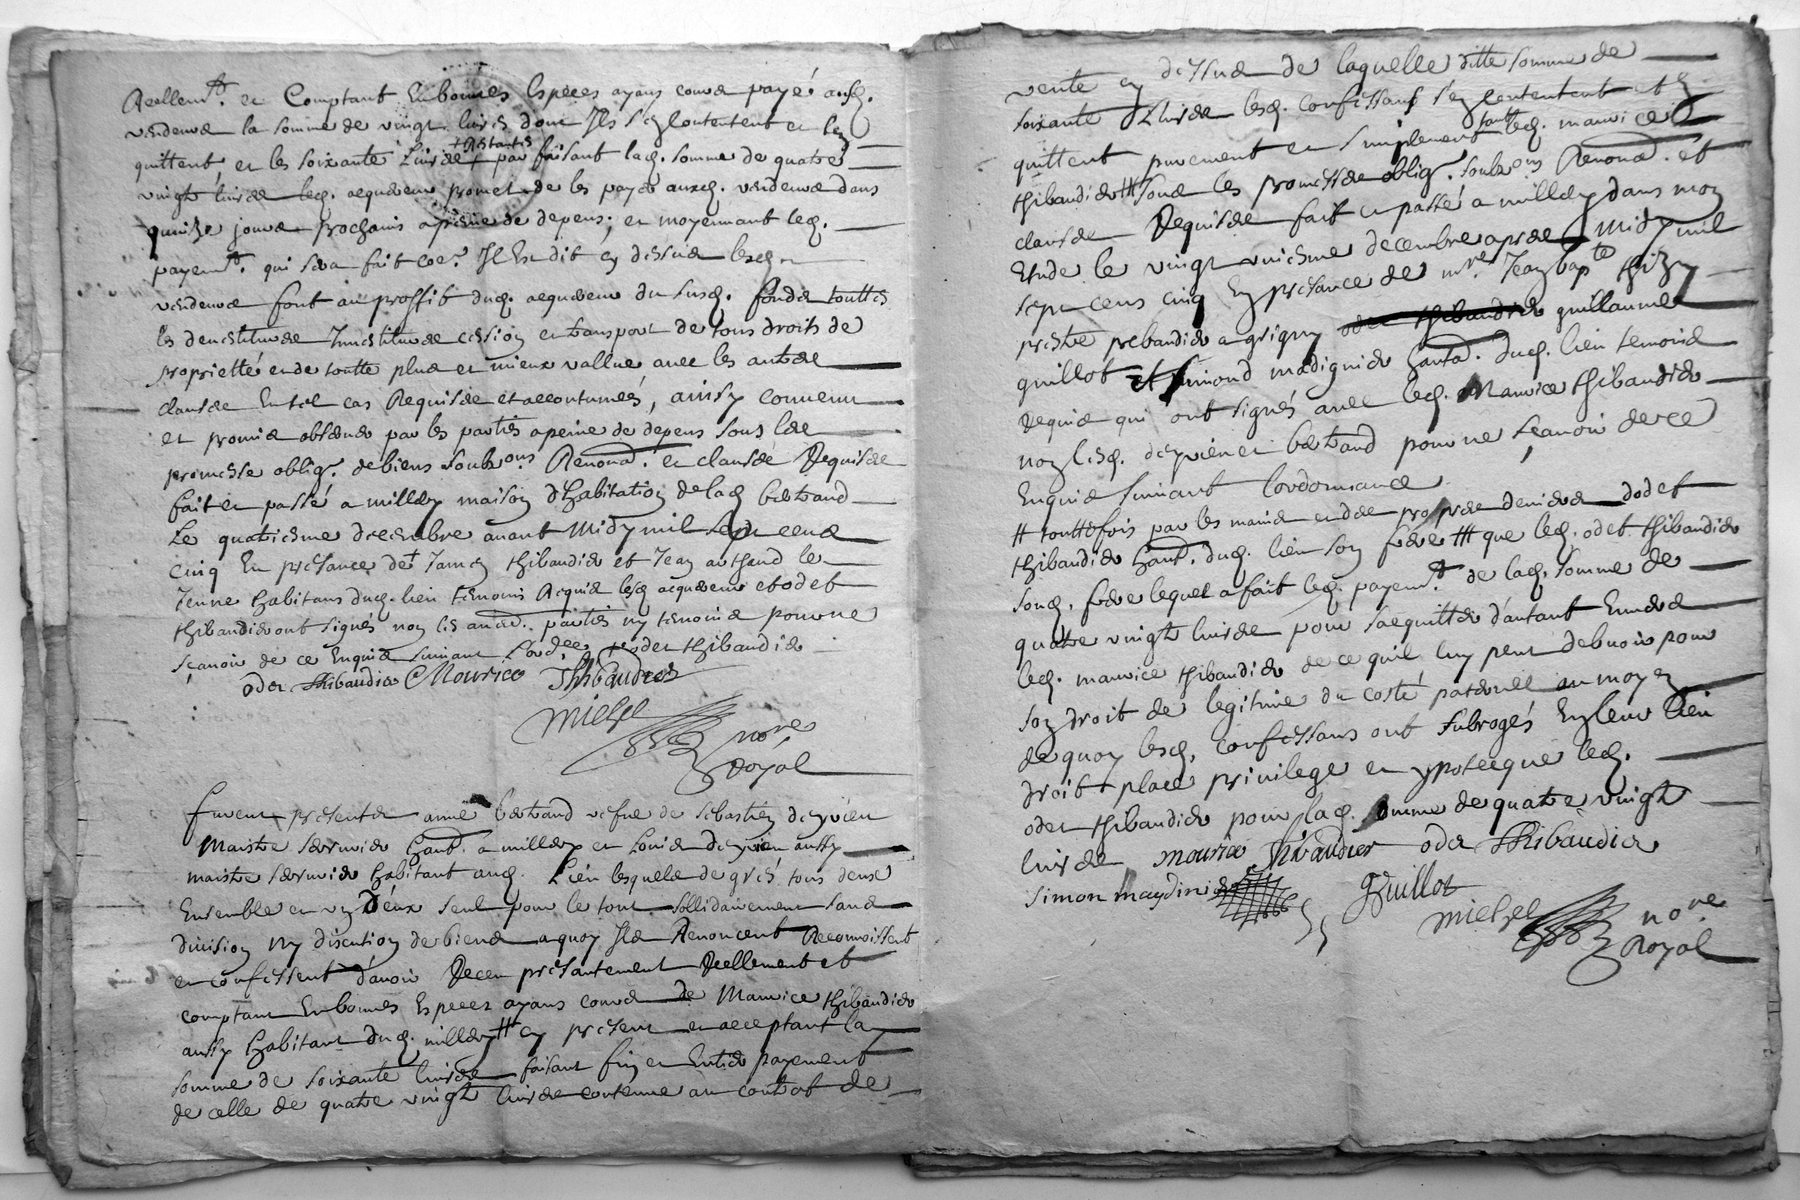 Reellemt. et Comptant En bonnes Especes ayans cours payé ausd.
vendeurs la somme de vingt livres dont Ils s'en contentent et len
quittent, et les soixante Livres + par faisant lad. somme de quatre
+ Restantes
vingt livres led. acquereur promet de les payer auxd. vendeurs dans
quinze jours prochains a peine de depens; et moyennant led.
payemt. qui sera fait coe. Il Est dit cy dessus lesd.
vendeurs font au proffit dud. acquereur du susd. fondz touttes
les devestitures Investitures cession et transport de tous droits de
proprietté et de toutte plus et mieux vallue avec les autres
clauses En tel cas Requises et accoutumées, ainsy convenu
et promis observer par les parties a peine de depens sous les
promesse obligs. de biens soubzons. Renond. et clauses Requises
fait et passé a millery maison d'habitation de lad bertrand
Le quatriesme decembre avant Midy mil sept cens
cinq En presance de Jamen thibaudier et Jean arthaud le
Jeune habitans dud. lieu temoins Requis lesd acquereur et odet
thibaudier ont signés non les autres parties ny temoins pour ne
sçavoir de ce Enquis suivant l'ordce odet thibaudier
odet Thibaudier Mourice Thibaudier
Michel nore
Royal
furent presents anne bertrand vefve de sebastien deyvieu
Maistre serrurier habt. a millery et Louis deyvieu aussy
maistre serrurier habitant aud. Lieu lesquels de gré tous deux
Ensemble et un d'eux seul pour le tout sollidairement sans
division ny discution de biens a quoy Ils Renoncent Reconnoissent
et confessent d'avoir Receu presantement Reellement et
comptant En bonnes Especes ayans cours de Maurice thibaudier
aussy habitant dud. millery # cy present et acceptant la
somme de soixante livres faisant fin et Entier payement
de celle de quatre vingt livres contenue au contrat de
vente cy dessus de laquelle ditte somme de
soixante Livres lesd. confessans s'en contentent et
quittent purement et simplement tant led. maurice
thibaudier # sous les promesses oblig. soubzons Renond. et
clauses Requises fait et passé a millery dans mon
Etude le vingt uniesme decembre apres Midy mil
sept cens cinq En presance de mre. Jean bapte thizy
prestre prebandier a grigny guillaume
guillot et simond madignier habtd. dud. lieu temoins
requis qui ont signés avec led. Maurice thibaudier
non lesd. deyvieu et bertrand pour ne sçavoir de ce
Enquis suivant l'ordonnance
# touttefois par les mains et des propres deniers d'odet
thibaudier habt. dud. lieu son frere # que led. odet thibaudier
sond. frere lequel a fait led. payemt. de lad. somme de
quatre vingt livres pour s'acquitter d'autant Envers
led. maurice thibaudier de ce qu'il luy peut debvoir pour
son droit de legitime du costé paternel au moyen
de quoy lesd. confessans ont subrogés En leur lieu
droit place privilege et ypotecque led.
odet thibaudier pour lad. somme de quatre vingt
livres mourice thibaudier odet Thibaudier
simon maydinier Guillot
Michel nore
Royal